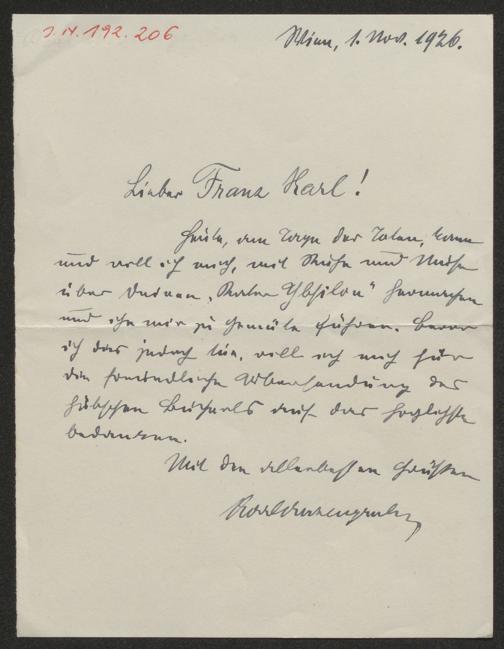 J.N. 192.206
Wien, 1. Nov. 1926.
Lieber Franz Karl!
Heute, am Tage der Toten, kann
und will ich mich, mit Ruhe und Muße
über Deinen „Kater Ypsilon“ hermachen
und ihn mir zu Gemüte führen. Bevor
ich das jedoch tue, will ich mich für
die freundliche Übersendung des
hübschen Büchels auf das herzlichste
bedanken.
Mit den allerbesten Grüßen